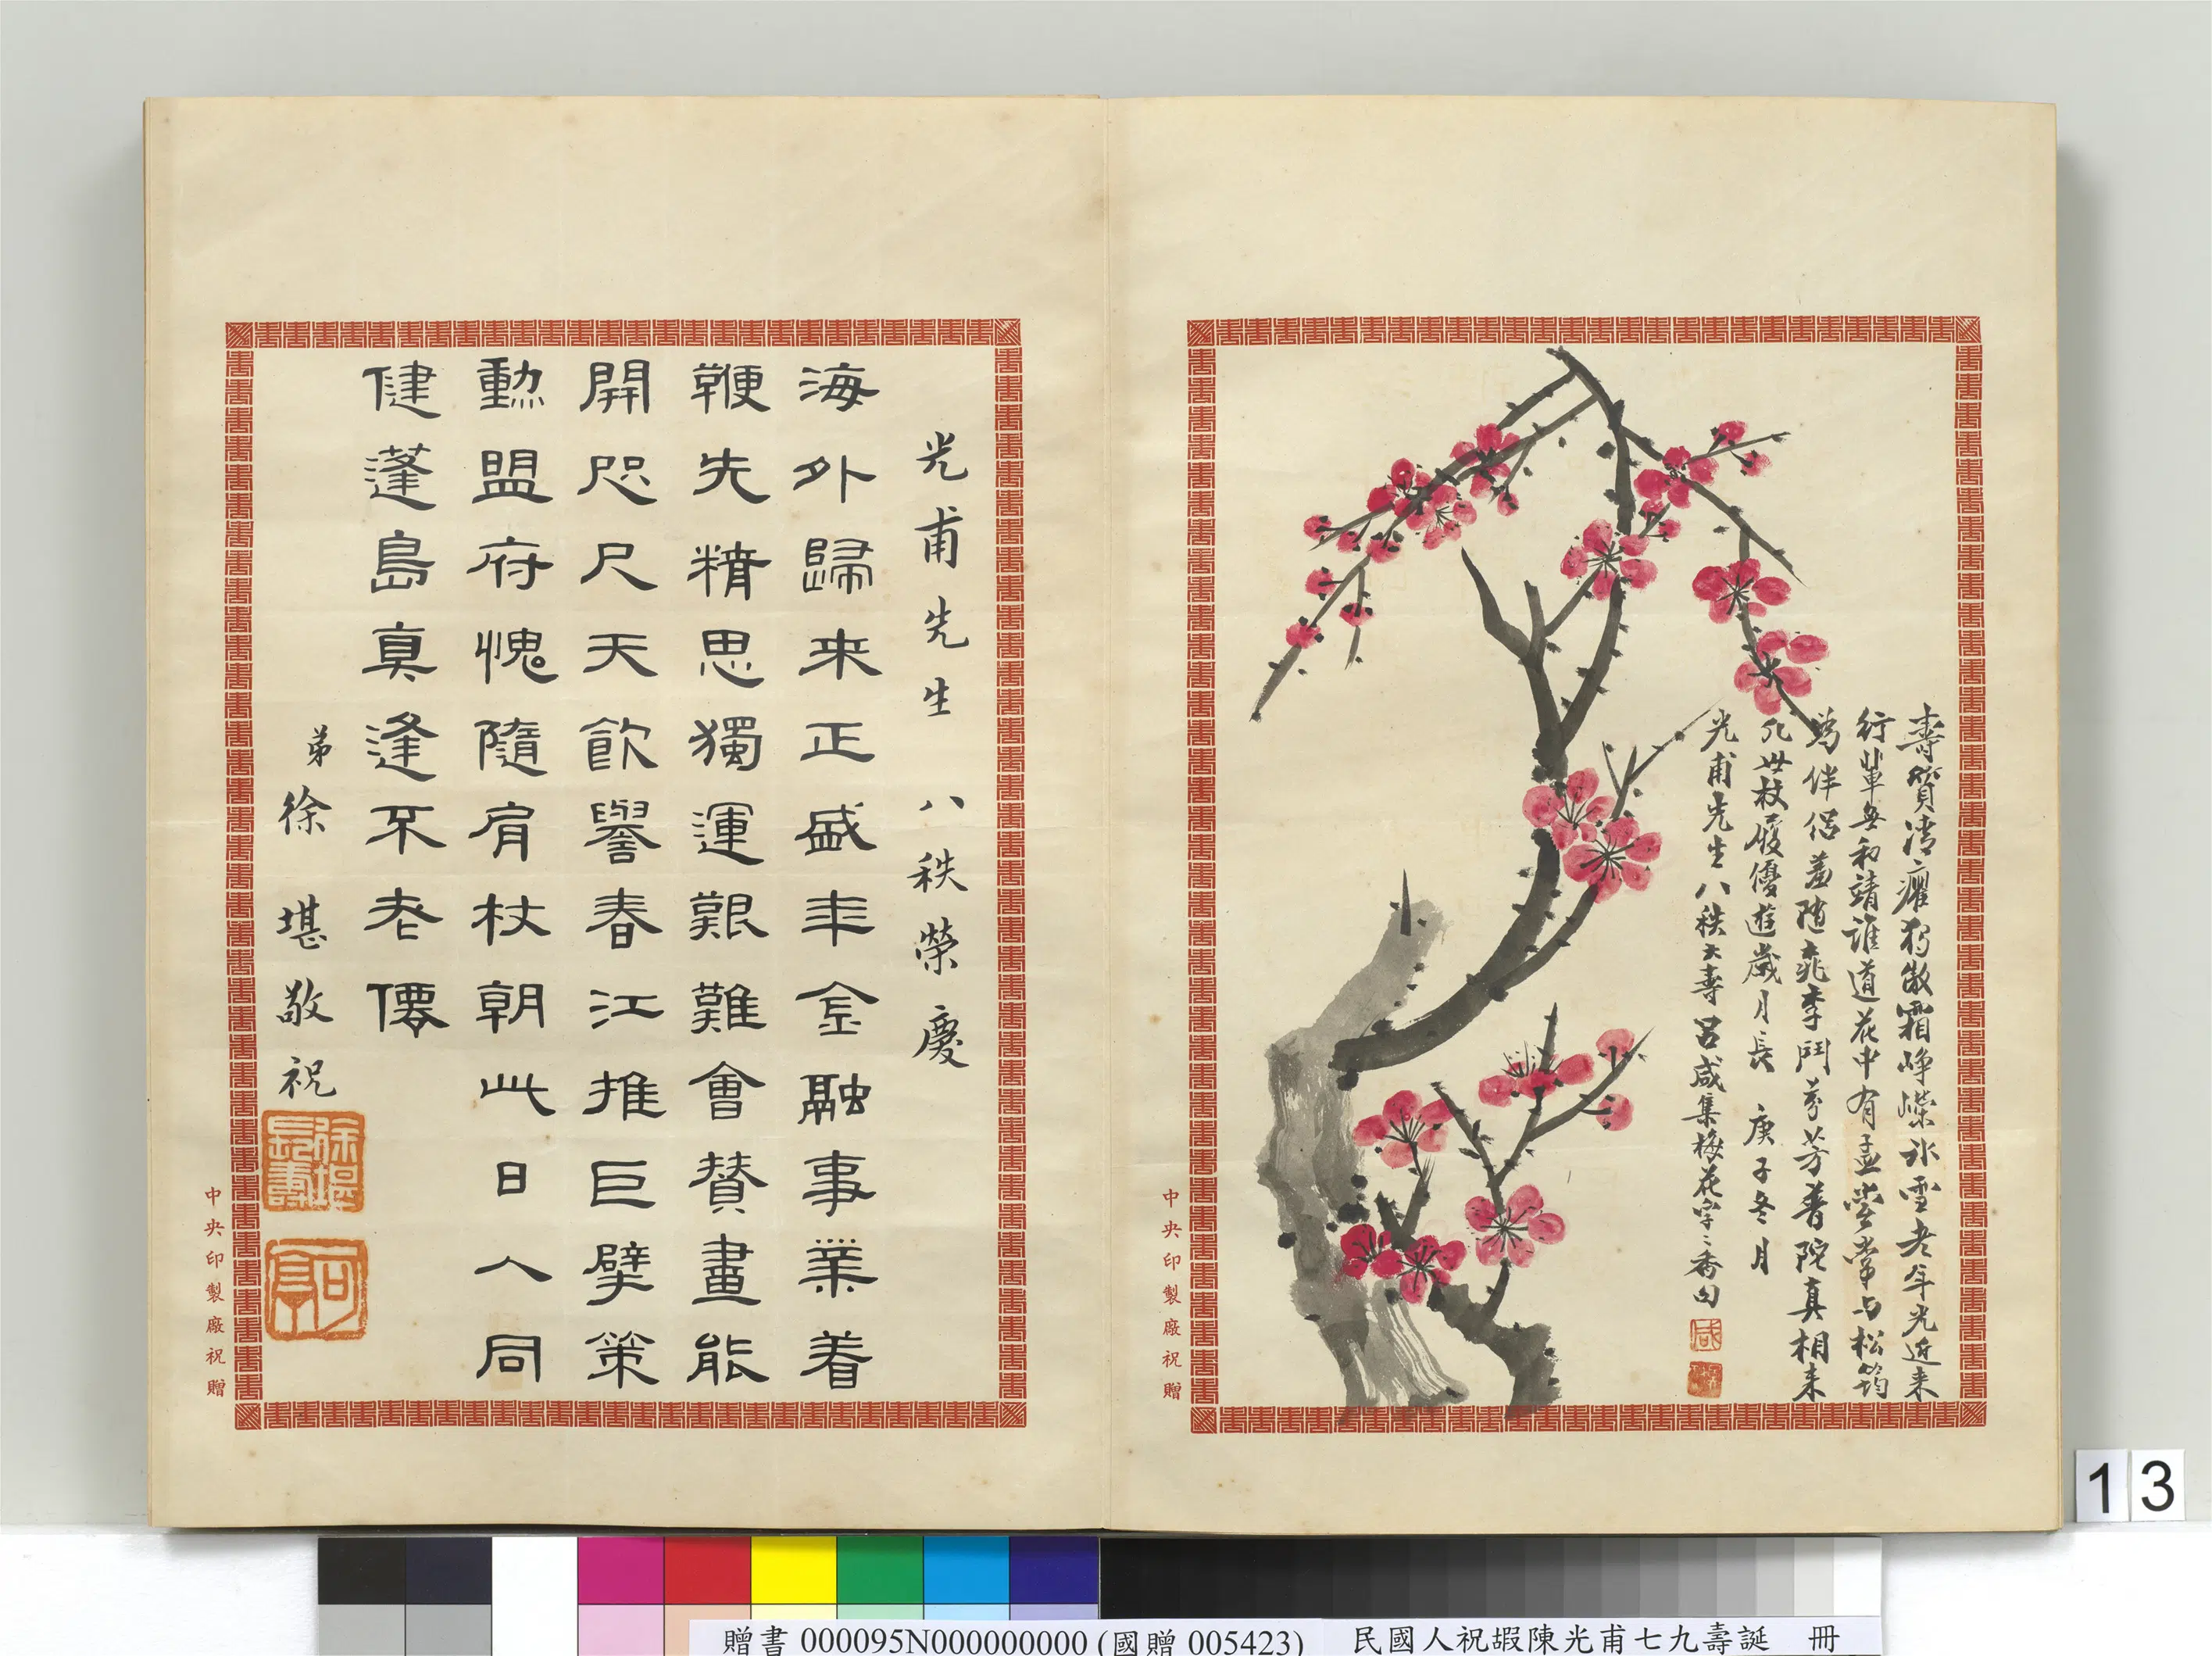 壽質清癯獨傲霜崢嶸冰雪老年光近來
行輩無和靖誰道花中有孟嘗常与松筠
為伴侶羞隨桃李鬥芬芳普陀真相来
凡世杖履優遊歲月長 庚子冬月
光甫先生八秩大壽 呂咸集梅花字字香句
咸
中央印製廠祝贈
光甫先生 八秩榮慶
海外歸来正盛年金融事業着
鞭先精思獨運艱難會贊畫能
開咫尺天飲譽春江推巨擘策
勳盟府愧隨肩杖朝此日人同
健蓬島真逢不老僊
弟徐堪敬祝
徐堪長壽
可亭
中央印製廠祝贈
13
贈書 000095N000000000 (國贈 005423) 民國人祝嘏陳光甫七九壽誕 冊